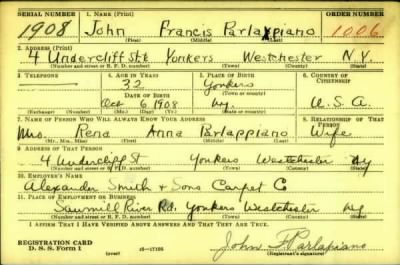 SERIAL NUMBER 1. NAME (Print) ORDER NUMBER
1908 John Francis Parlapiano 1006
(First) (Middle) (Last)
2. ADDRESS (Print)
4 Undercliff St Yonkers Westchester N.Y.
(Number and street or R. F. D. number) (Town) (County) (State)
3. TELEPHONE 4. AGE IN YEARS 5. PLACE OF BIRTH 6. COUNTRY OF CITIZENSHIP
32 Yonkers
DATE OF BIRTH (Town or county)
Oct 6 1908 Ny. U.S.A.
(Exchange) (Number) (Mo.) (Day) (Yr.) (State or country)
7. NAME OF PERSON WHO WILL ALWAYS KNOW YOUR ADDRESS 8. RELATIONSHIP OF THAT PERSON
Mrs. Rena Anna Parlappiano Wife
(Mr., Mrs., Miss) (First) (Middle) (Last)
9. ADDRESS OF THAT PERSON
4 Undercliff St Yonkers Westchester Ny
(Number and street or R. F. D. number) (Town) (County) (State)
10. EMPLOYER'S NAME
Alexander Smith & Sons Carpet Co
11. PLACE OF EMPLOYMENT OR BUSINESS
Sawmill River Rd. Yonkers Westchester Ny
(Number and street or R. F. D. number) (Town) (County) (State)
I AFFIRM THAT I HAVE VERIFIED ABOVE ANSWERS AND THAT THEY ARE TRUE.
REGISTRATION CARD
D. S. S. Form 1 (over) 16-17105 John F. Parlapiano
(Registrant's signature)